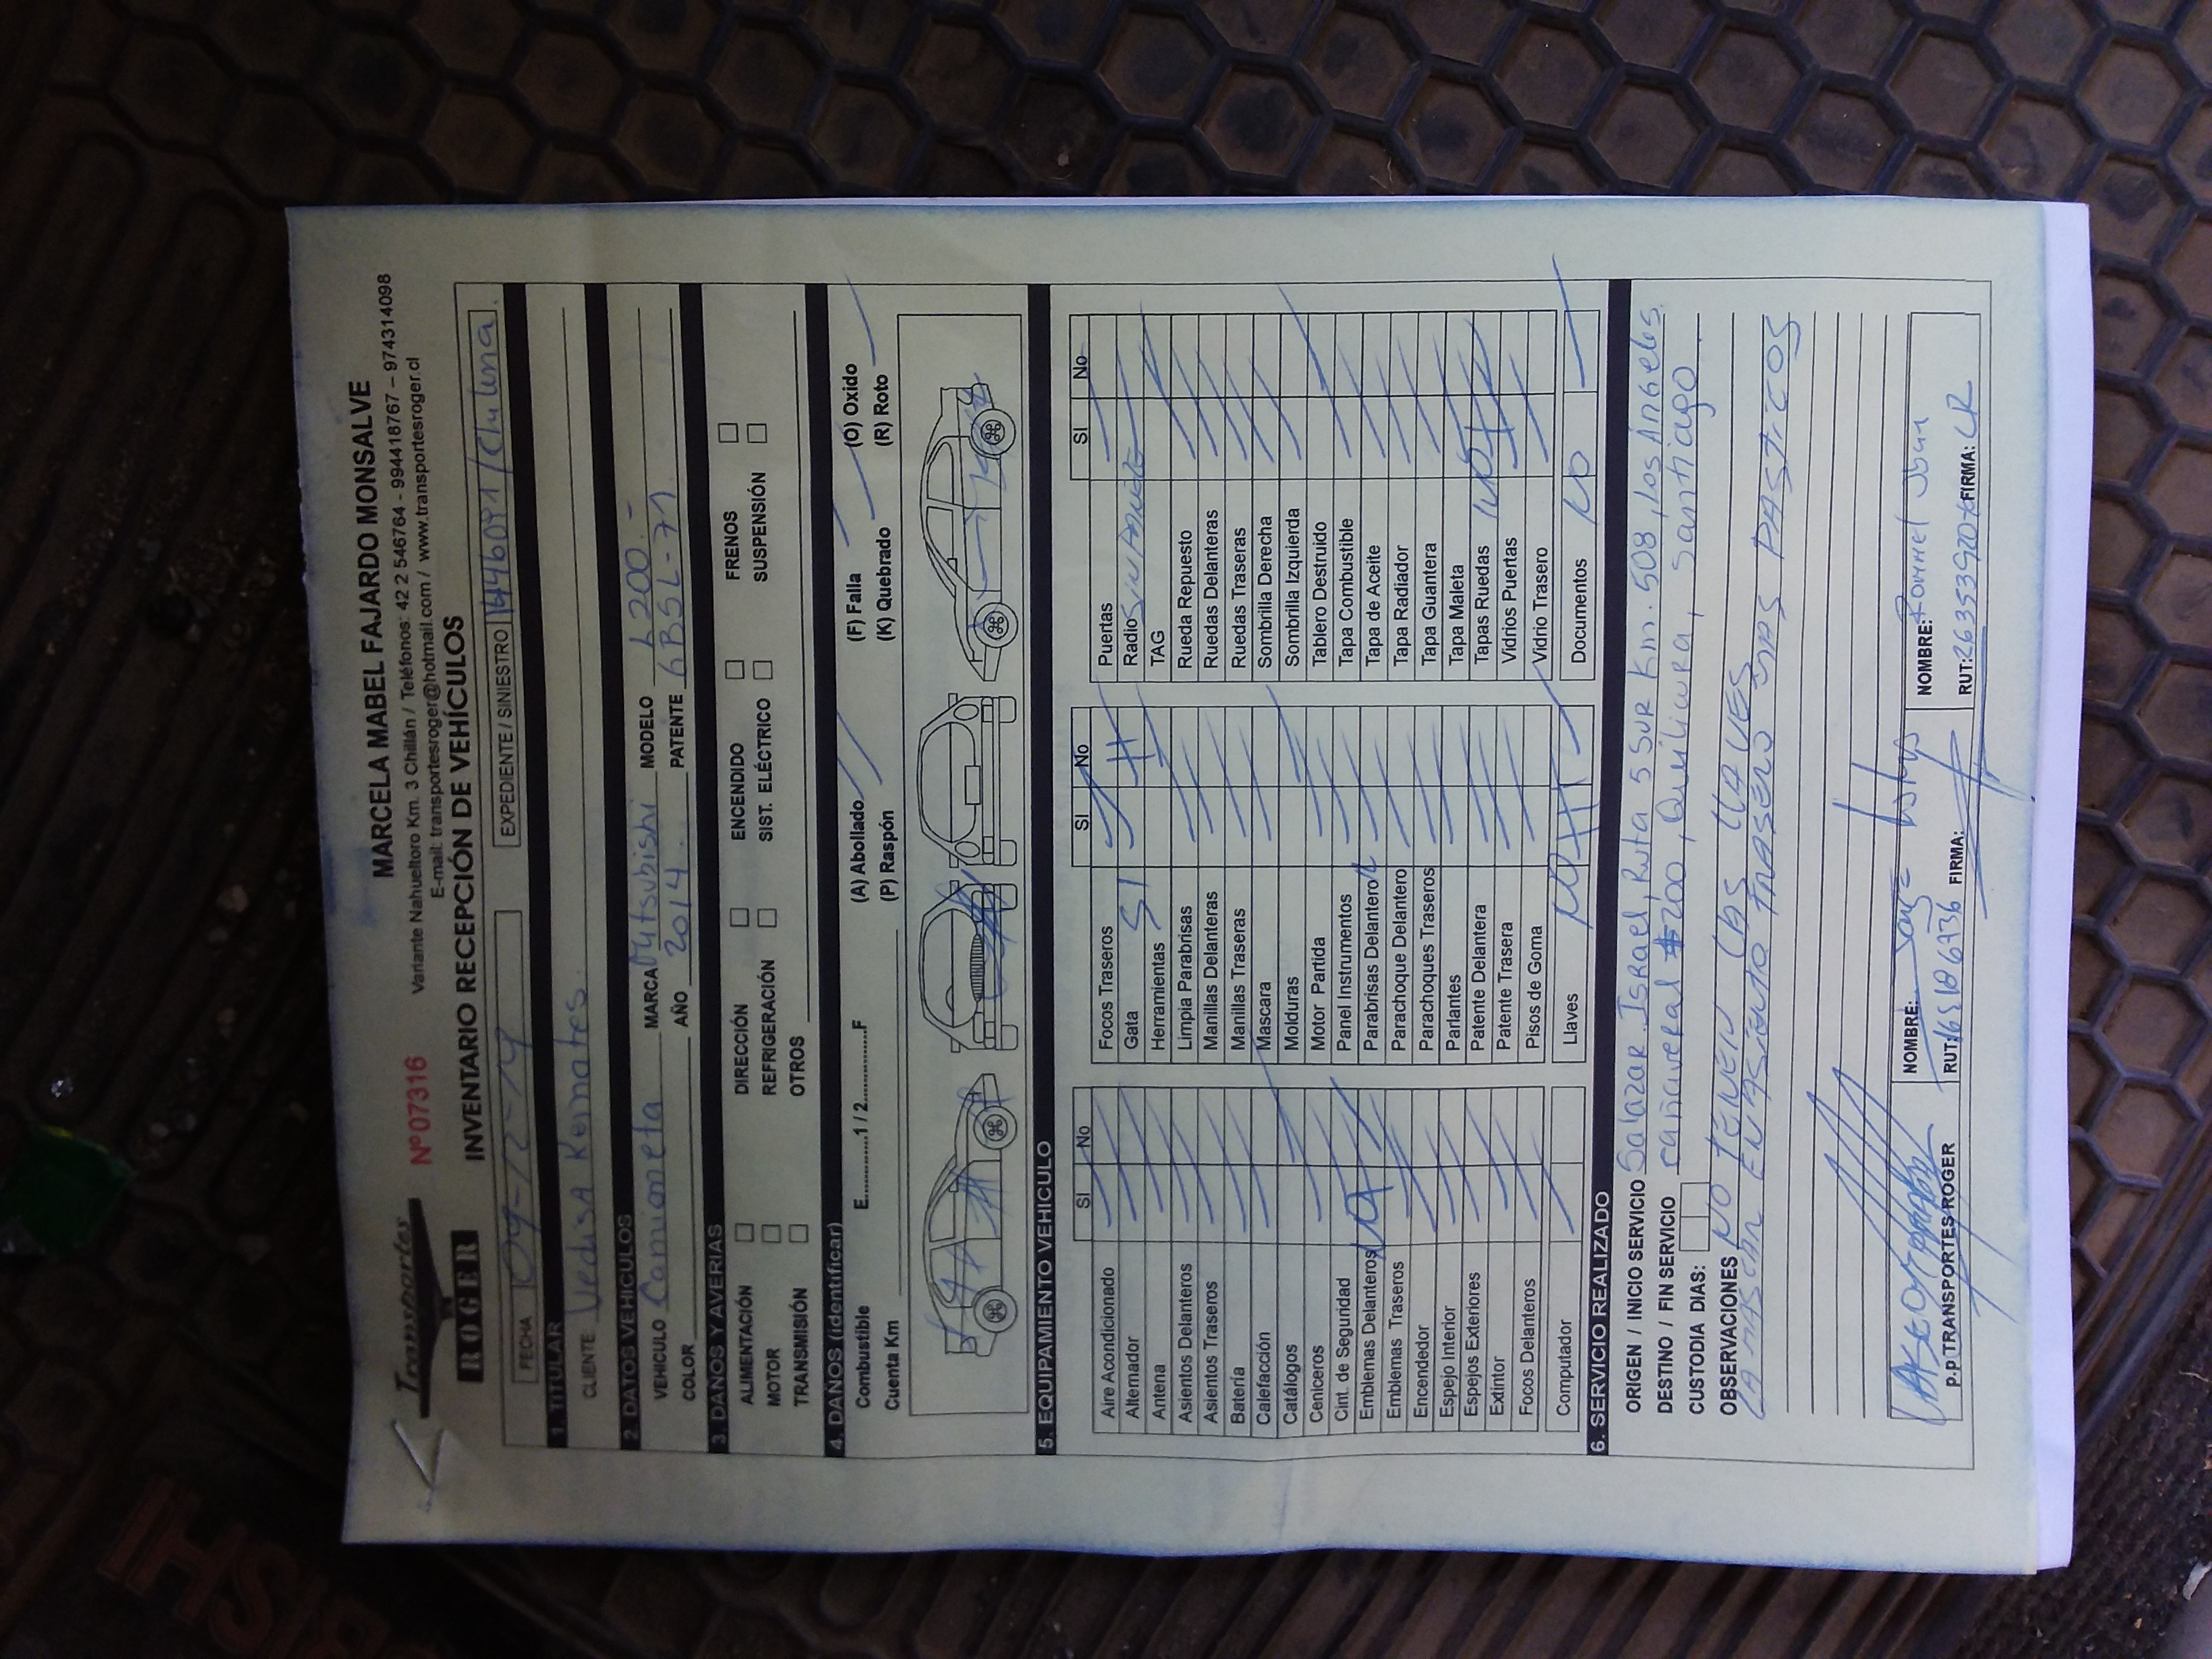 Transportes
ROGER
Nº 07316
MARCELA MABEL FAJARDO MONSALVE
Variante Nahueltoro Km. 3 Chillán / Teléfonos: 42 2 546764 - 994418767 – 974314098
E-mail: transportesroger@hotmail.com / www.transportesroger.cl
INVENTARIO RECEPCIÓN DE VEHÍCULOS
FECHA 09-12-19 EXPEDIENTE / SINIESTRO
1. TITULAR
CLIENTE Vedisa Remates.
2. DATOS VEHICULOS
VEHICULO Camioneta MARCA Mitsubishi MODELO L200.-
COLOR AÑO 2014 PATENTE GBSL-71.
3. DAÑOS Y AVERIAS
ALIMENTACIÓN DIRECCIÓN ENCENDIDO FRENOS
MOTOR REFRIGERACIÓN SIST. ELÉCTRICO SUSPENSIÓN
TRANSMISIÓN OTROS
4. DAÑOS (identificar)
Combustible E............1 / 2............F (A) Abollado (F) Falla (O) Oxido
Cuenta Km (P) Raspón (K) Quebrado (R) Roto
5. EQUIPAMIENTO VEHICULO
SI No SI No SI No
Aire Acondicionado Focos Traseros Puertas
Alternador Gata SI Radio Sin Panel
Antena Herramientas TAG
Asientos Delanteros Limpia Parabrisas Rueda Repuesto
Asientos Traseros Manillas Delanteras Ruedas Delanteras
Batería Manillas Traseras Ruedas Traseras
Calefacción Mascara Sombrilla Derecha
Catálogos Molduras Sombrilla Izquierda
Ceniceros Motor Partida Tablero Destruido
Cint. de Seguridad Panel Instrumentos Tapa Combustible
Emblemas Delanteros Parabrisas Delantero Tapa de Aceite
Emblemas Traseros Parachoque Delantero Tapa Radiador
Encendedor Parachoques Traseros Tapa Guantera
Espejo Interior Parlantes Tapa Maleta
Espejos Exteriores Patente Delantera Tapas Ruedas NO
Extintor Patente Trasera Vidrios Puertas
Focos Delanteros Pisos de Goma Vidrio Trasero
Computador Llaves NO Documentos NO
6. SERVICIO REALIZADO
ORIGEN / INICIO SERVICIO Salazar Israel, Ruta 5 Sur Km. 508, Los Angeles.
DESTINO / FIN SERVICIO cañaveral #200, Quilicura, Santiago
CUSTODIA DIAS:
OBSERVACIONES NO TENEN LAS LLAVES
LA MASCAR EN ASIENTO TRASERO MAS PASTICOS
NOMBRE: Jorge NOMBRE: Rommel
P.P TRANSPORTES ROGER RUT: FIRMA: RUT: FIRMA: